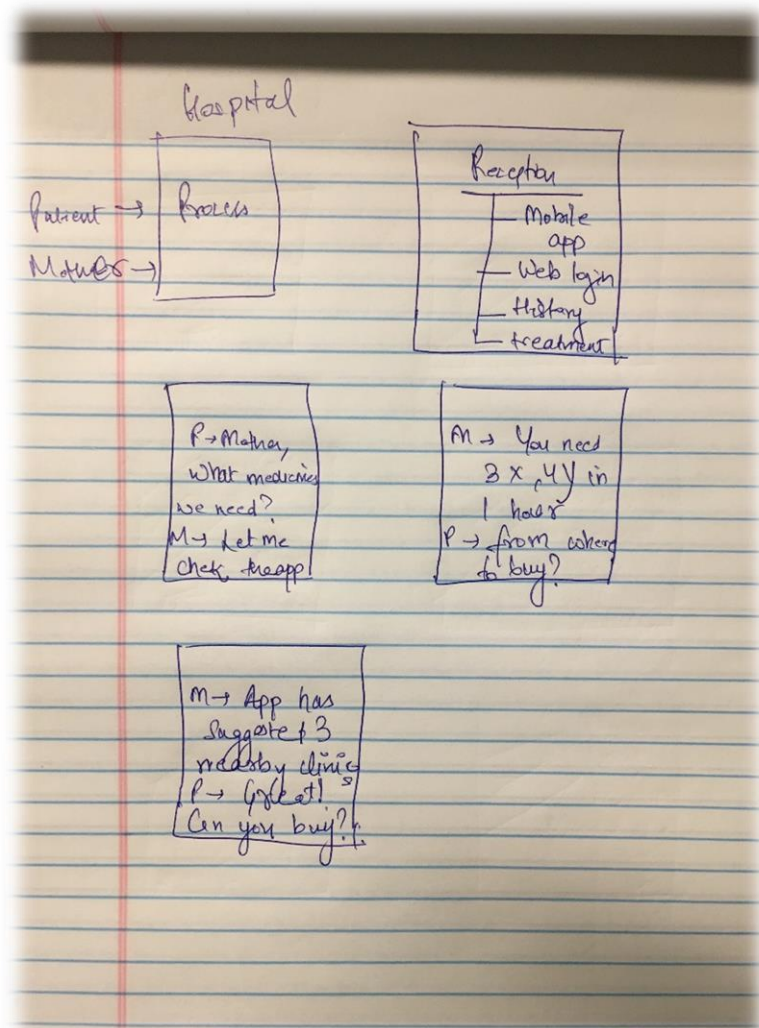 Hospital
Patient →
Process
Mother →
Reception
Mobile
app
Web login
History
treatment
P → Mother,
What medicines
we need?
M → Let me
chek the app
M → You need
3 x, 4y in
1 hour
P → from where
to buy?
M → App has
suggested 3
nearby clinics
P → Great!
Can you buy?